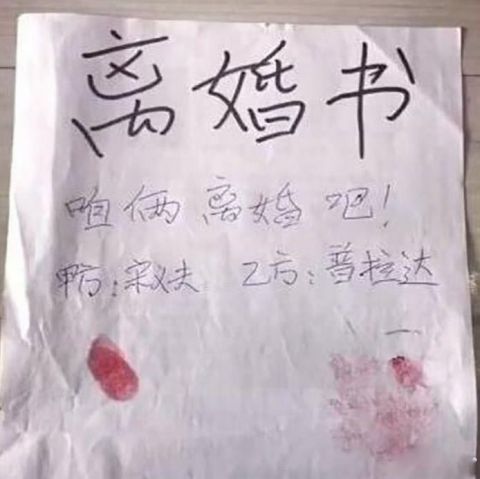 离婚书
咱俩离婚吧!
甲方:宋义夫 乙方:普拉达